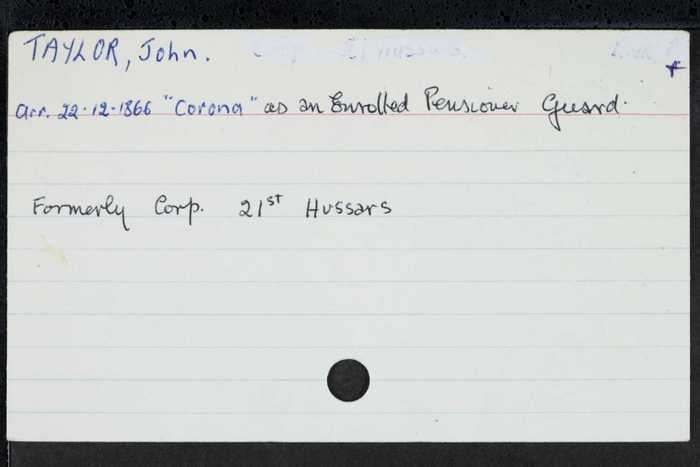 TAYLOR, John.
arr. 22.12.1866 "Corona" as an Enrolled Pensioner Guard.
Formerly Corp. 21st Hussars